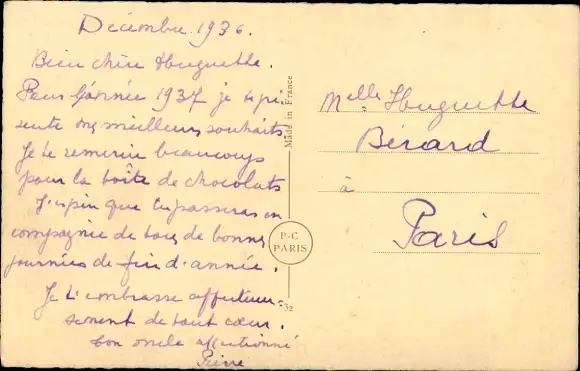 Décembre 1936.
Bien chère Huguette.
Pour l'année 1937 je te pré-
sente mes meilleurs souhaits
Je te remercie beaucoup
pour la boîte de chocolats
J'espère que tu passeras en
compagnie de tous de bonnes
journées de fin d'année.
Je t'embrasse affectueu-
sement de tout cœur.
ton oncle affectionné
Pierre
Made in France
P-C
PARIS
32
Melle Huguette
Bérard
à
Paris